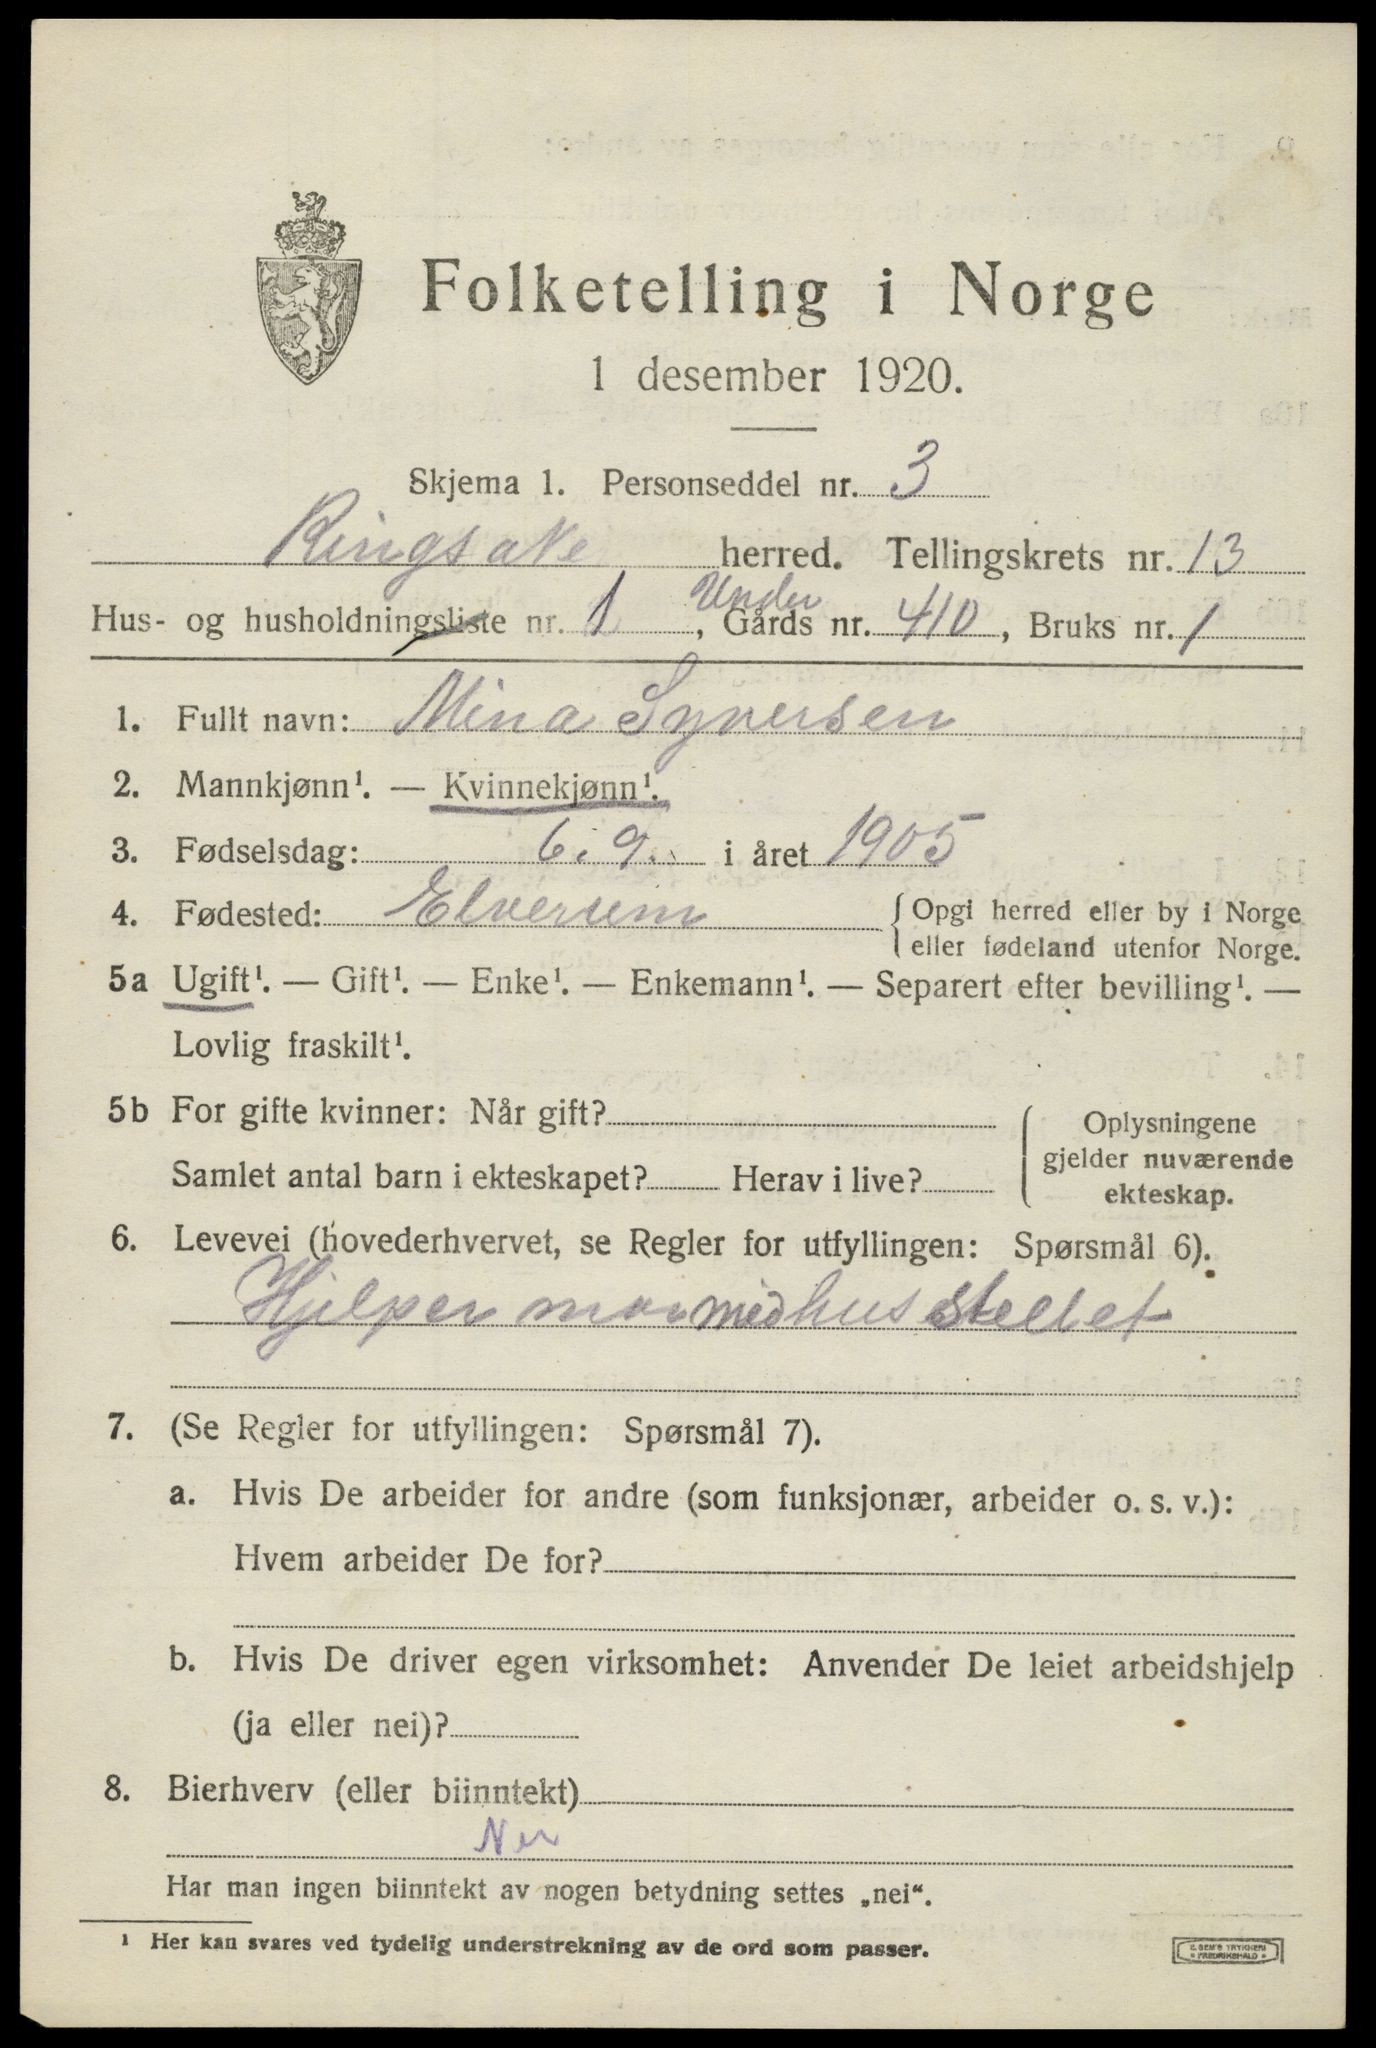 Folketelling i Norge
1 desember 1920.
Skjema 1. Personseddel nr. 3
Ringsake herred. Tellingskrets nr. 13
Under
Hus- og husholdningsliste nr. 1, Gårds nr. 410, Bruks nr. 1
1. Fullt navn: Mina Syversen
2. Mannkjønn¹. — Kvinnekjønn¹.
3. Fødselsdag: 6. 9. i året 1905
4. Fødested: Elverum { Opgi herred eller by i Norge
eller fødeland utenfor Norge.
5a Ugift¹. — Gift¹. — Enke¹. — Enkemann¹. — Separert efter bevilling¹. —
Lovlig fraskilt¹.
5b For gifte kvinner: Når gift? { Oplysningene
gjelder nuværende
Samlet antal barn i ekteskapet? Herav i live?
ekteskap.
6. Levevei (hovederhvervet, se Regler for utfyllingen: Spørsmål 6).
Hjelper mor med husstellet
7. (Se Regler for utfyllingen: Spørsmål 7).
a. Hvis De arbeider for andre (som funksjonær, arbeider o. s. v.):
Hvem arbeider De for?
b. Hvis De driver egen virksomhet: Anvender De leiet arbeidshjelp
(ja eller nei)?
8. Bierhverv (eller biinntekt)
Nei
Har man ingen biinntekt av nogen betydning settes „nei“.
¹ Her kan svares ved tydelig understrekning av de ord som passer.
E. SEM'S TRYKKERI
* FREDRIKSHALD *